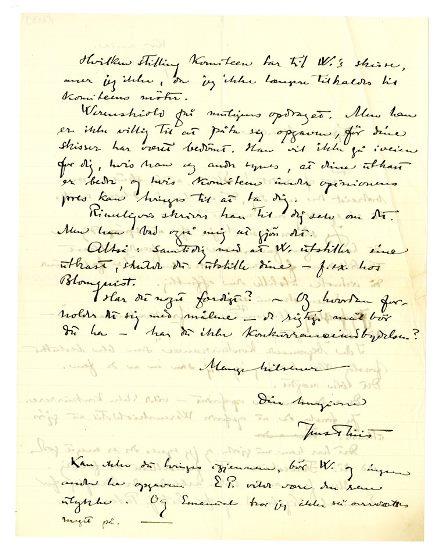 Hvilken stilling Komiteen har til W.'s skisse,
aner jeg ikke, da jeg ikke længere tilkaldes til
Komiteens møter.
Werenskiold får muligens opdraget. Men han
er ikke villig til at påta sig opgaven, før dine
skisser har været bedømt. Han vil ikke gå iveien
for dig, hvis han og andre synes, at dine utkast
er bedre, og hvis Komiteen under opinionens
pres kan tvinges til at ta dig.
Rimeligvis skriver han til dig selv om det.
Men han bad også mig at gjøre det.
Altså: samtidig med at W. utstiller sine
utkast, skulde du utstille dine – f. ex. hos
Blomquist.
Har du noget færdigt? – Og hvordan for-
holder det sig med målene – de rigtige mål bør
du ha – har du ikke Konkurranceindbydelsen?
Mange hilsener
Din hengivne
Jens Thiis
Kan ikke du bringes igjennem, bør W. og ingen
anden ha opgaven. E. P. vilde være den rene
ulykke. Og Emanuel tror jeg ikke
på.